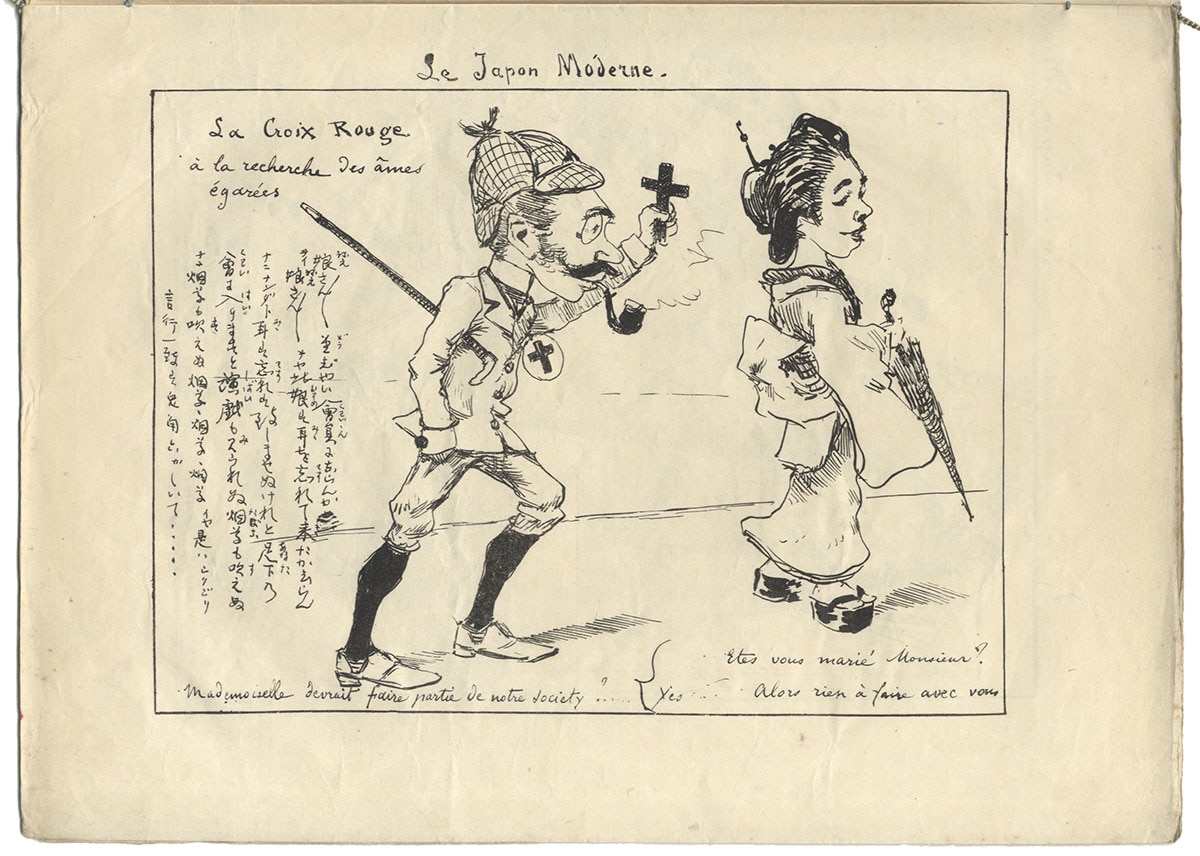 Le Japon Moderne.
La Croix Rouge
à la recherche des âmes
égarées
娘さん〱 會員にならんか
娘さん〱 娘は耳を忘れて来たか知らん
耳は忘れは致しませぬけれと足下の
會に入りますと演戯も見られぬ烟草も吹えぬ
烟草も吹えぬ烟草、烟草、烟草 イヤ是ハシクジリ
言行一致は兎角六かしいて.....
Mademoiselle devrait faire partie de notre society?.....
Etes vous marié Monsieur?
Yes..... Alors rien à faire avec vous